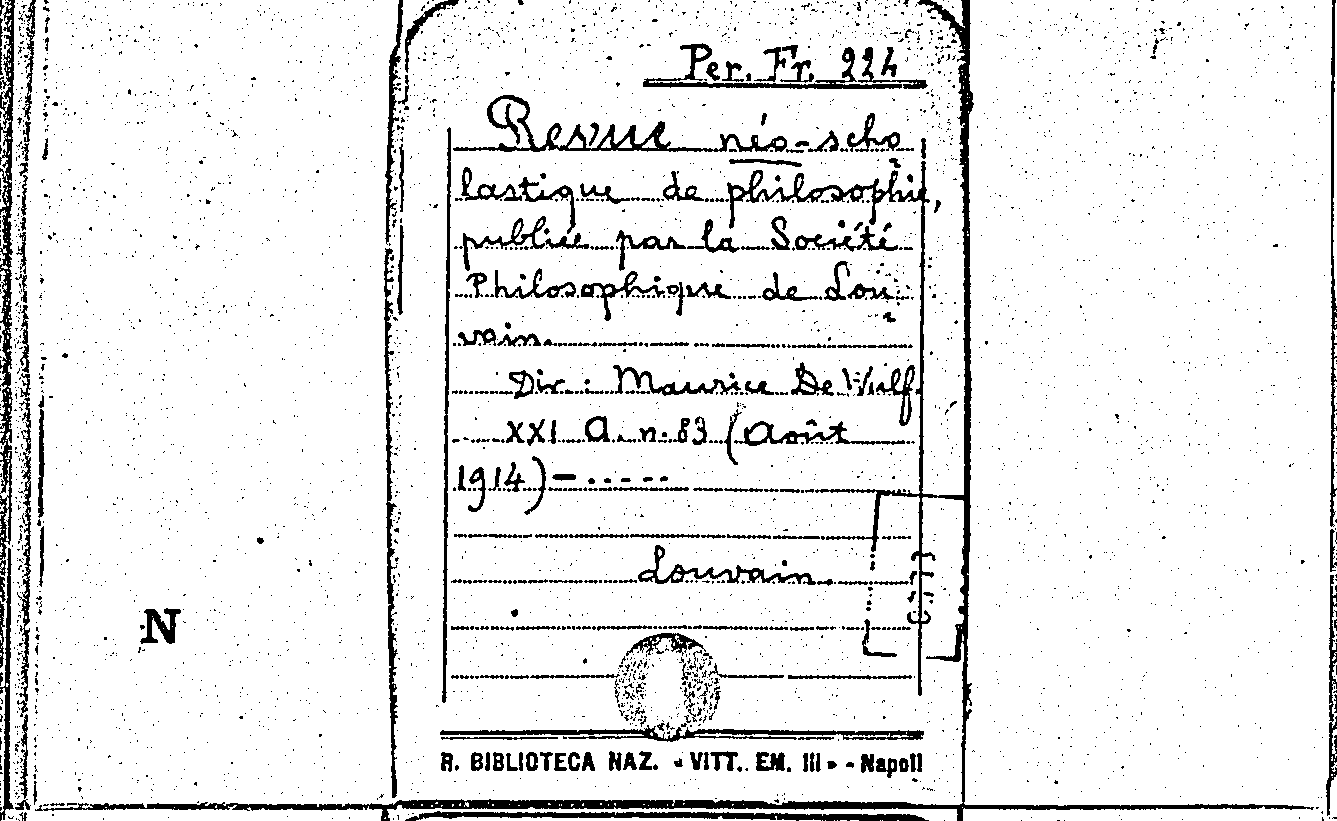 Per. Fr. 224
Revue néo-scho
lastique de philosophie,
publiée par la Société
Philosophique de Lou
vain.
Dir.: Maurice De Wulf.
XXI A. n. 83 (Août
1914) - .....
Louvain.
N
R. BIBLIOTECA NAZ. « VITT. EM. III » - Napoli